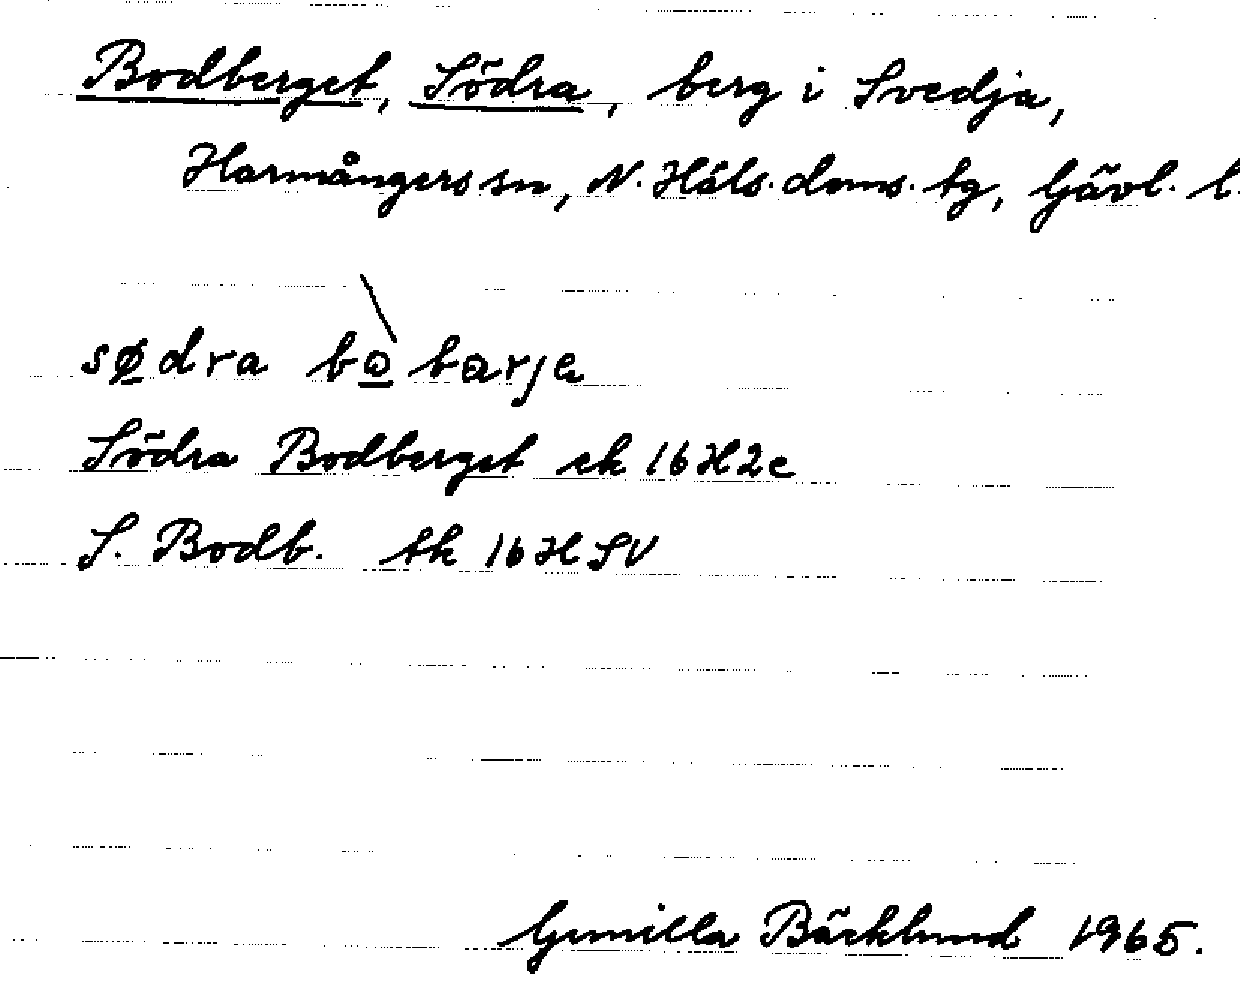 Bodberget, Södra, berg i Svedja,
Harmångers sn, N. Häls. doms. tg, Gävl. l.
sødra bo̲ barje
Södra Bodberget ek 16H2c
S. Bodb. tk 16H SV
Gunilla Bäcklund 1965.